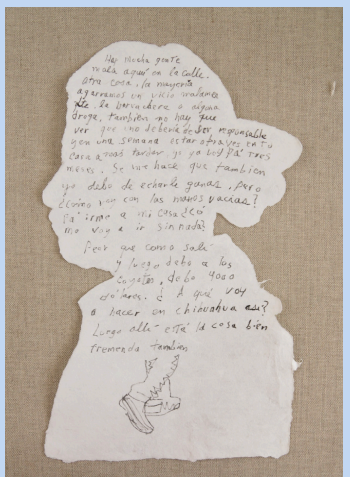 Hay mucha gente
mala aquí en la calle.
Otra cosa, la mayoría
agarramos un vicio
de la borrachera o alguna
droga, tambien no hay que
ver que uno debería de ser responsable
y en una semana estar otra vez en tu
casa a más tardar y yo voy pa' tres
meses. Se me hace que tambien
yo debo de echarle ganas, pero
¿cómo voy con las manos vacias?
¿Pa' irme a mi casa
me voy a ir sin nada?
Peor que como salí
y luego debo a los
coyotes, debo 9000
dólares. ¿A qué voy
a hacer en chihuahua asi?
Luego allí está la cosa bien
tremenda tambien